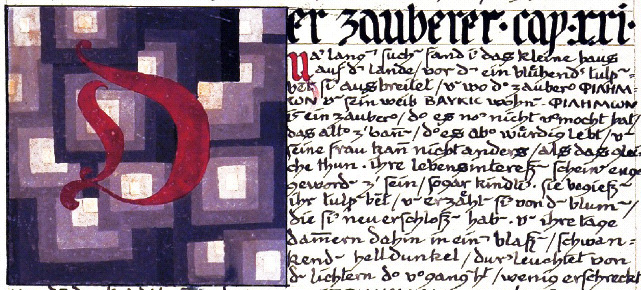 Der zauberer. cap. xxi.
Na' lang' such' fand i' das kleine haus
auf d' lande/ vor d' ein blühend' tulp'=
bēt si' ausbreitet/ v' wo d' zaubero ΦΙΛΗΜ=
ΩΝ v' sein weib ΒΑΥΚΙC wohn'. ΦΙΛΗΜΩΝ
is' ein zaubero/ do es no' nicht v'mocht hat/
das alto z' bann'/ do es abo würdig lebt/ v'
seine frau kan̄ nicht anders/ als das glei=
che thun. ihre lebensinteress' schein' enge
geword' z' sein/ sogar kindli'. sie begieß'
ihr tulp'bēt/ v' erzähl' si' von d' blum'/
die si' neu erschloß' hab'. v' ihre tage
däm̄ern dahin in ein' blaß'/ schwan=
kend' helldunkel/ dur'leuchtet von
d' lichtern do v'gang'ht/ wenig erschreckt